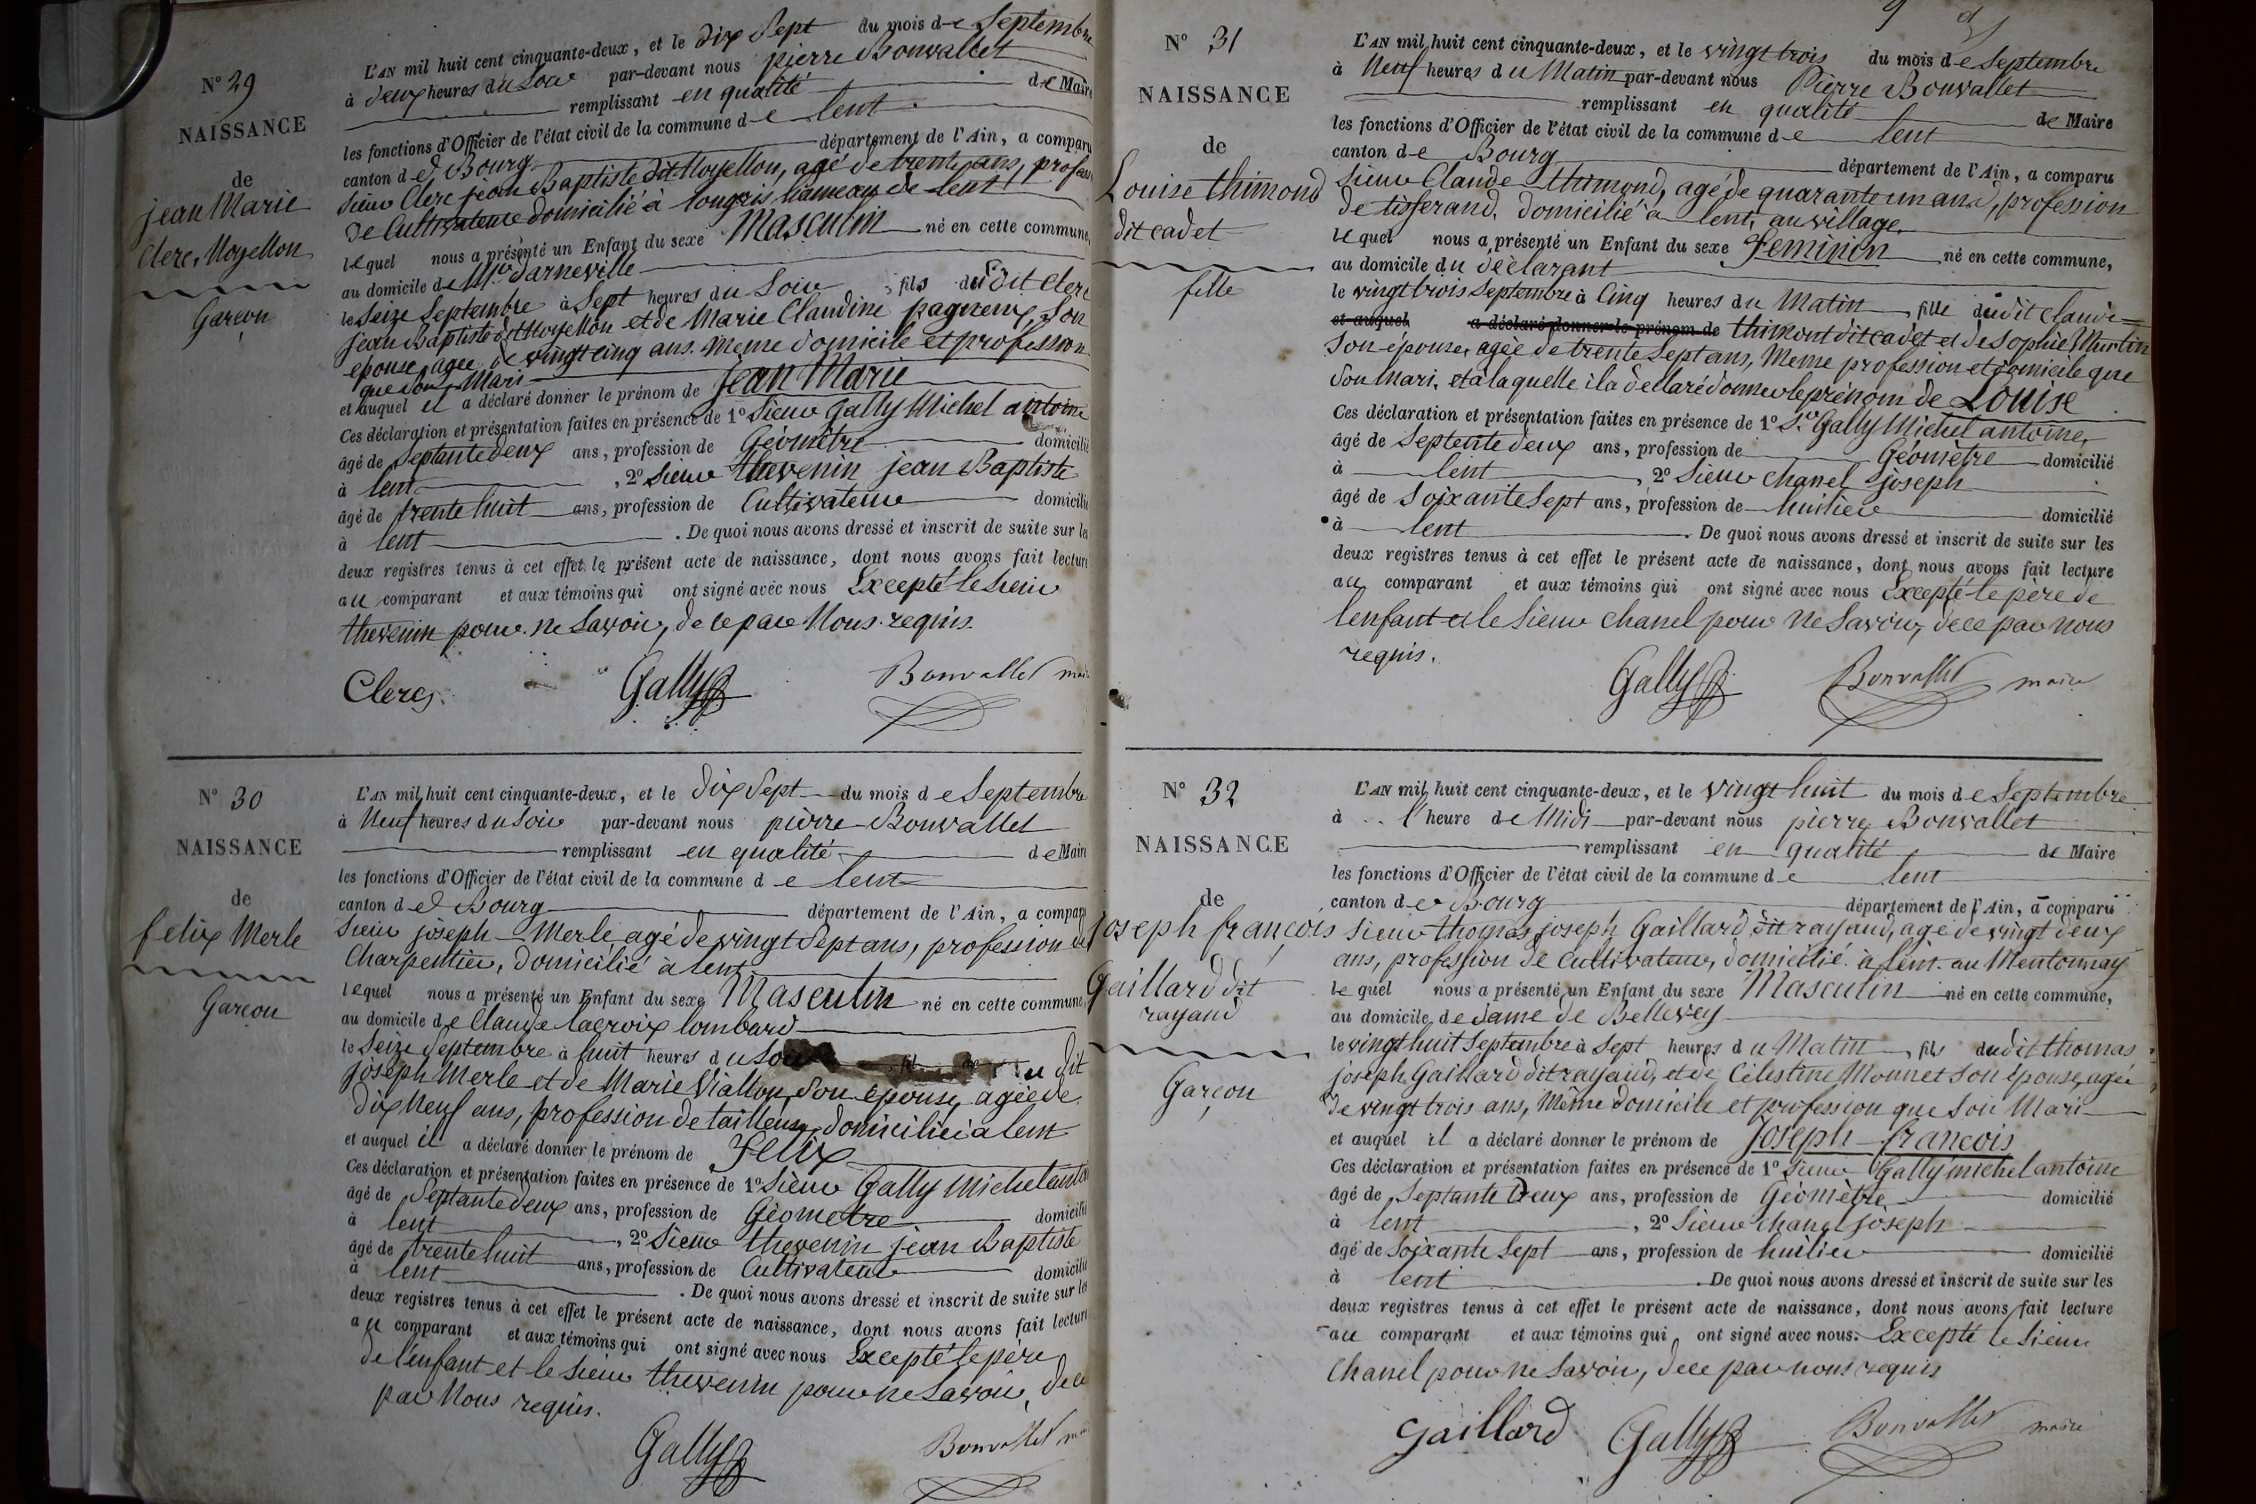 N° 29
NAISSANCE
de
jean Marie
Clerc, Moyellon
Garçon
L'AN mil huit cent cinquante-deux, et le dix Sept du mois de Septembre
à deux heures du Soir par-devant nous pierre Bonvallet
remplissant en qualité de Maire
les fonctions d'Officier de l'état civil de la commune de lent
canton de Bourg département de l'Ain, a comparu
Sieur Clerc jean Baptiste dit Moyellon, agé de trente ans, profession
de Cultivateur domicilié à longris hameau de lent
lequel nous a présenté un Enfant du sexe Masculin né en cette commune,
au domicile de Mr. darneville
le Seize Septembre à Sept heures du Soir, fils du dit Clerc
jean Baptiste dit Moyellon et de Marie Claudine pagneux, Son
epouse, agee de vingt cinq ans. meme domicile et profession
que son Mari
et auquel il a déclaré donner le prénom de jean Marie
Ces déclaration et présentation faites en présence de 1° Sieur Gally Michel antoine
âgé de Septante deux ans, profession de Géomètre domicilié
à lent, 2° Sieur thevenin jean Baptiste
âgé de trente huit ans, profession de Cultivateur domicilié
à lent. De quoi nous avons dressé et inscrit de suite sur les
deux registres tenus à cet effet le présent acte de naissance, dont nous avons fait lecture
au comparant et aux témoins qui ont signé avec nous Excepté le Sieur
thevenin pour ne Savoir, de ce par Nous requis.
Clerc Gally Bonvallet maire
N° 30
NAISSANCE
de
felix Merle
Garçon
L'AN mil huit cent cinquante-deux, et le dix Sept du mois de Septembre
à Neuf heures du Soir par-devant nous pierre Bonvallet
remplissant en qualité de Maire
les fonctions d'Officier de l'état civil de la commune de lent
canton de Bourg département de l'Ain, a comparu
Sieur joseph Merle, agé de vingt Sept ans, profession de
Charpentier, domicilié à lent,
lequel nous a présenté un Enfant du sexe Masculin né en cette commune,
au domicile de Claude lacroix lombard
le Seize Septembre à huit heures du Soir du dit
joseph Merle et de Marie Viallon, Son épouse, agée de
dix Neuf ans, profession de tailleuse domiciliée à lent
et auquel il a déclaré donner le prénom de Felix
Ces déclaration et présentation faites en présence de 1° Sieur Gally Michel antoine
âgé de Septante deux ans, profession de Géometre domicilié
à lent, 2° Sieur thevenin jean Baptiste
âgé de trente huit ans, profession de Cultivateur domicilié
à lent. De quoi nous avons dressé et inscrit de suite sur les
deux registres tenus à cet effet le présent acte de naissance, dont nous avons fait lecture
au comparant et aux témoins qui ont signé avec nous Excepté le père
de l'enfant et le Sieur thevenin pour ne Savoir, de ce
par Nous requis.
Gally Bonvallet maire
9
N° 31
NAISSANCE
de
Louise thimond
dit cadet
fille
L'AN mil huit cent cinquante-deux, et le vingt trois du mois de Septembre
à Neuf heures du Matin par-devant nous Pierre Bonvallet
remplissant en qualité de Maire
les fonctions d'Officier de l'état civil de la commune de lent
canton de Bourg département de l'Ain, a comparu
Sieur Claude thimond, agé de quarante un ans, profession
de tisserand, domicilié à lent, au village,
lequel nous a présenté un Enfant du sexe Feminin né en cette commune,
au domicile du déclarant
le vingt trois Septembre à Cinq heures du Matin, fille dudit claude
et auquel a déclaré donner le prénom de thimont dit cadet et de Sophie Murtin
Son épouse, agée de trente Sept ans, Meme profession et domicile que
Son Mari, et à laquelle il a declaré donner le prénom de Louise
Ces déclaration et présentation faites en présence de 1° Sr Gally Michel antoine,
âgé de Septente deux ans, profession de Géomètre domicilié
à lent, 2° Sieur Chanel joseph
âgé de Soixante Sept ans, profession de huilier domicilié
à lent. De quoi nous avons dressé et inscrit de suite sur les
deux registres tenus à cet effet le présent acte de naissance, dont nous avons fait lecture
au comparant et aux témoins qui ont signé avec nous Excepté le père de
l'enfant et le Sieur chanel pour Ne Savoir, de ce par nous
requis.
Gally Bonvallet maire
N° 32
NAISSANCE
de
joseph françois
Gaillard dit
rayaud
Garçon
L'AN mil huit cent cinquante-deux, et le vingt huit du mois de Septembre
à l'heure de Midi par-devant nous pierre Bonvallet
remplissant en qualité de Maire
les fonctions d'Officier de l'état civil de la commune de lent
canton de Bourg département de l'Ain, a comparu
Sieur thomas joseph Gaillard dit rayaud, agé de vingt deux
ans, profession de Cultivateur, domicilié à lent. au Mentonnay
lequel nous a présenté un Enfant du sexe Masculin né en cette commune,
au domicile de dame de Bellevey
le vingt huit Septembre à Sept heures du Matin, fils dudit thomas
joseph Gaillard dit rayaud, et de Célestine Monnet Son épouse, agée
de vingt trois ans, Même domicile et profession que Son Mari
et auquel il a déclaré donner le prénom de Joseph-françois
Ces déclaration et présentation faites en présence de 1° Sieur Gally michel antoine
âgé de Septante Deux ans, profession de Géomètre domicilié
à lent, 2° Sieur Chanel joseph
âgé de Soixante Sept ans, profession de huilier domicilié
à lent. De quoi nous avons dressé et inscrit de suite sur les
deux registres tenus à cet effet le présent acte de naissance, dont nous avons fait lecture
au comparant et aux témoins qui ont signé avec nous. Excepté le Sieur
Chanel pour ne Savoir, de ce par nous requis
Gaillard Gally Bonvallet maire